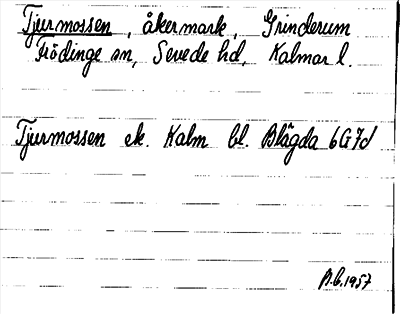 Tjurmossen, åkermark, Grinderum
Frödinge sn, Sevede hd, Kalmar l.
Tjurmossen ek. Kalm bl. Blågda 6G7d
B.b.1957